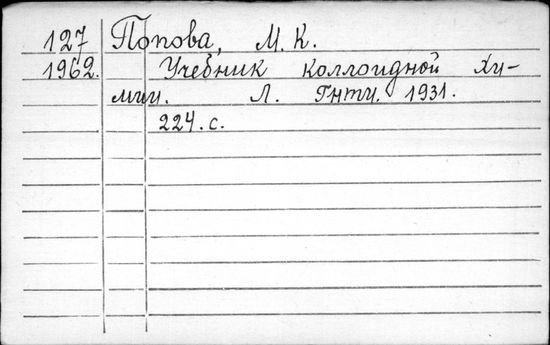 127 Попова, М. К.
1962. Учебник коллоидной хи-
мии. Л. Гнти. 1931.
224. с.